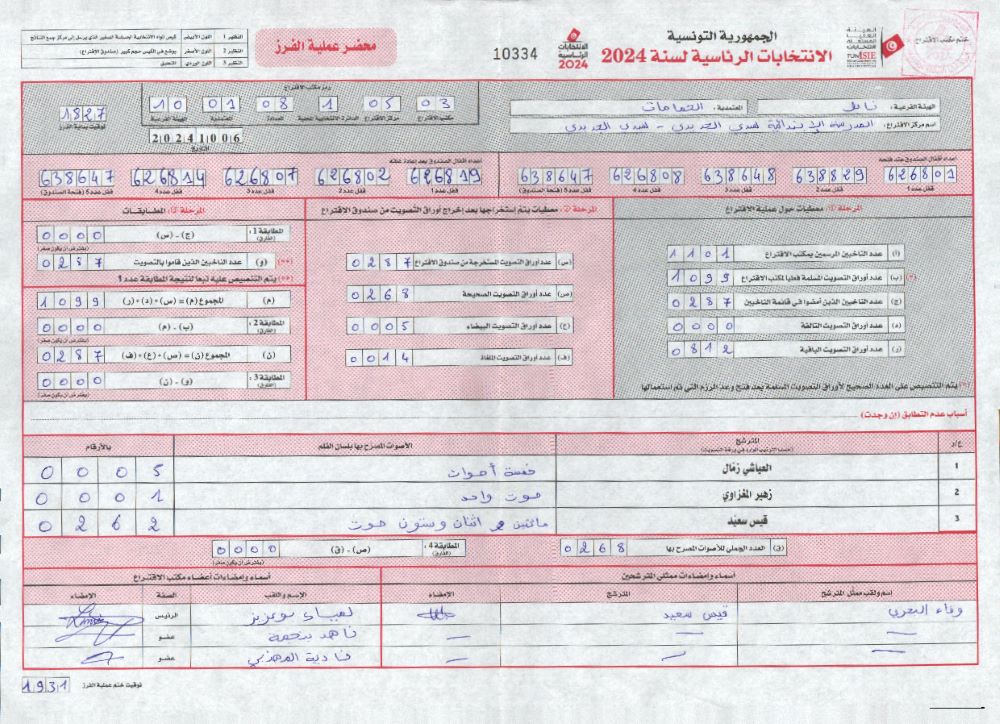 ختم مكتب الاقتراع
الهيئة العليا المستقلة للانتخابات
TUNISIE
الجمهورية التونسية
الانتخابات الرئاسية لسنة 2024
الانتخابات الرئاسية 2024
10334
محضر عملية الفرز
النظير 1 اللون الأبيض
النظير 2 اللون الأصفر يوضع في الكيس حجم كبير (صندوق الاقتراع)
النظير 3 اللون الوردي التعليق
الهيئة الفرعية : نابل المعتمدية : الحمامات
اسم مركز الاقتراع : المدرسة الإبتدائية سيدي الجديدي - سيدي الجديدي
رمز مكتب الاقتراع
03 05 1 08 01 10
مكتب الاقتراع مركز الاقتراع الدائرة الانتخابية المعتمدية الهيئة الفرعية
20241006
التاريخ
1827
توقيت بداية الفرز
أعداد أقفال الصندوق عند فتحه
626801 638829 638648 626808 638647
قفل عدد 1 قفل عدد 2 قفل عدد 3 قفل عدد 4 قفل عدد 5 (فتحة الصندوق)
أعداد أقفال الصندوق بعد إعادة غلقه
626819 626802 626807 626814 638647
قفل عدد 1 قفل عدد 2 قفل عدد 3 قفل عدد 4 قفل عدد 5 (فتحة الصندوق)
المرحلة ①: معطيات حول عملية الاقتراع
(أ) عدد الناخبين المرسمين بمكتب الاقتراع 1101
(*) (ب) عدد أوراق التصويت المسلمة فعليا لمكتب الاقتراع 1099
(ج) عدد الناخبين الذين أمضوا في قائمة الناخبين 0287
(د) عدد أوراق التصويت التالفة 0000
(ر) عدد أوراق التصويت الباقية 0812
(*) يتم التنصيص على العدد الصحيح لأوراق التصويت المسلمة بعد فتح وعد الرزم التي تم استعمالها
المرحلة ②: معطيات يتم استخراجها بعد إخراج أوراق التصويت من صندوق الاقتراع
(س) عدد أوراق التصويت المستخرجة من صندوق الاقتراع 0287
(ص) عدد أوراق التصويت الصحيحة 0268
(ع) عدد أوراق التصويت البيضاء 0005
(ف) عدد أوراق التصويت الملغاة 0014
المرحلة ③: المطابقات
المطابقة 1 : (الفارق) (ج) - (س) 0000
(يفترض أن يكون صفر)
(**) (و) عدد الناخبين الذين قاموا بالتصويت 0287
(**) يتم التنصيص عليه تبعا لنتيجة المطابقة عدد 1
(م) المجموع (م) = (س) + (د) + (ر) 1099
المطابقة 2 : (الفارق) (ب) - (م) 0000
(يفترض أن يكون صفر)
(ن) المجموع (ن) = (ص) + (ع) + (ف) 0287
المطابقة 3 : (الفارق) (و) - (ن) 0000
(يفترض أن يكون صفر)
أسباب عدم التطابق (إن وجدت)
ع/د المترشح الأصوات المصرح بها بلسان القلم بالأرقام
(حسب الترتيب الوارد في ورقة التصويت)
1 العياشي زمّال خمسة أصوات 0005
2 زهير المغزاوي صوت واحد 0001
3 قيس سعيّد مائتين و اثنان وستون صوت 0262
(ق) العدد الجملي للأصوات المصرح بها 0268
المطابقة 4 : (الفارق) (ص) - (ق) 0000
(يفترض أن يكون صفر)
أسماء وإمضاءات ممثلي المترشحين أسماء وإمضاءات أعضاء مكتب الاقتراع
اسم ولقب ممثل المترشح المترشح الامضاء الإسم واللقب الصفة الامضاء
وفاء قيس سعيد لمياء بوعزيز الرئيس
— — — عضو
— — — فادية عضو
توقيت ختم عملية الفرز 1931